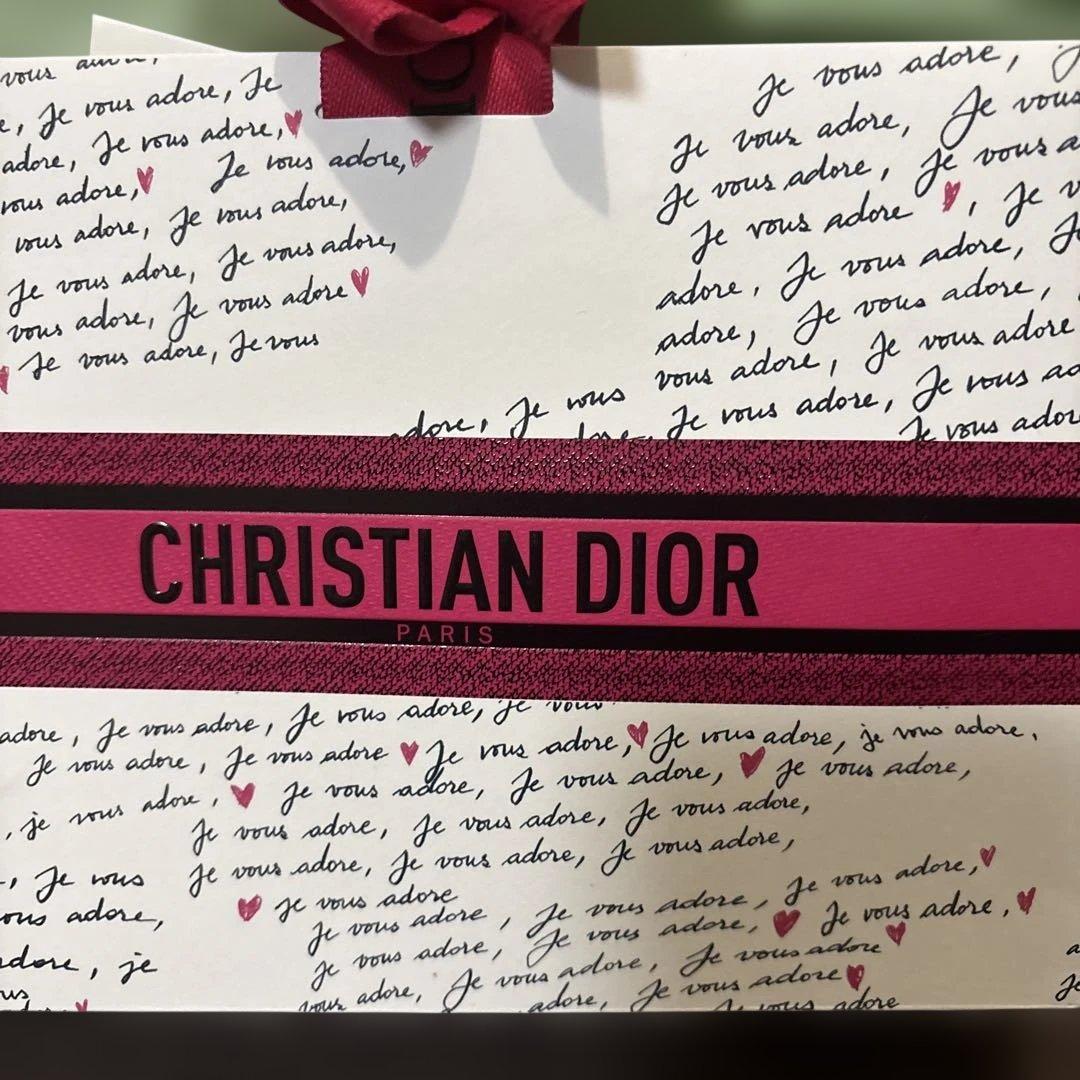 vous
Je vous adore, Je
adore, Je vous adore,
vous adore, Je vous adore,
vous adore, Je vous adore,
Je vous adore, Je vous adore,
vous adore, Je vous adore
Je vous adore, Je vous
Je vous adore,
Je vous adore, Je vous
Je vous adore, Je vous
Je vous adore, Je
adore, Je vous adore,
adore, Je vous adore,
vous adore, Je vous adore
adore, Je vous
Je vous adore, Je vous
Je vous
CHRISTIAN DIOR
PARIS
adore, Je vous adore, Je vous adore, Je vous
Je vous adore, Je vous adore Je vous adore, Je vous adore, je vous adore,
, je vous adore, Je vous adore, Je vous adore, Je vous adore,
Je vous adore, Je vous adore, Je vous adore,
Je vous Je vous adore, Je vous adore, Je vous adore,
vous adore, Je vous adore
Je vous adore, Je vous adore, Je vous adore,
adore, je Je vous adore, Je vous adore, Je vous adore,
vous adore, Je vous adore, Je vous adore
adore, Je vous adore
Je vous adore